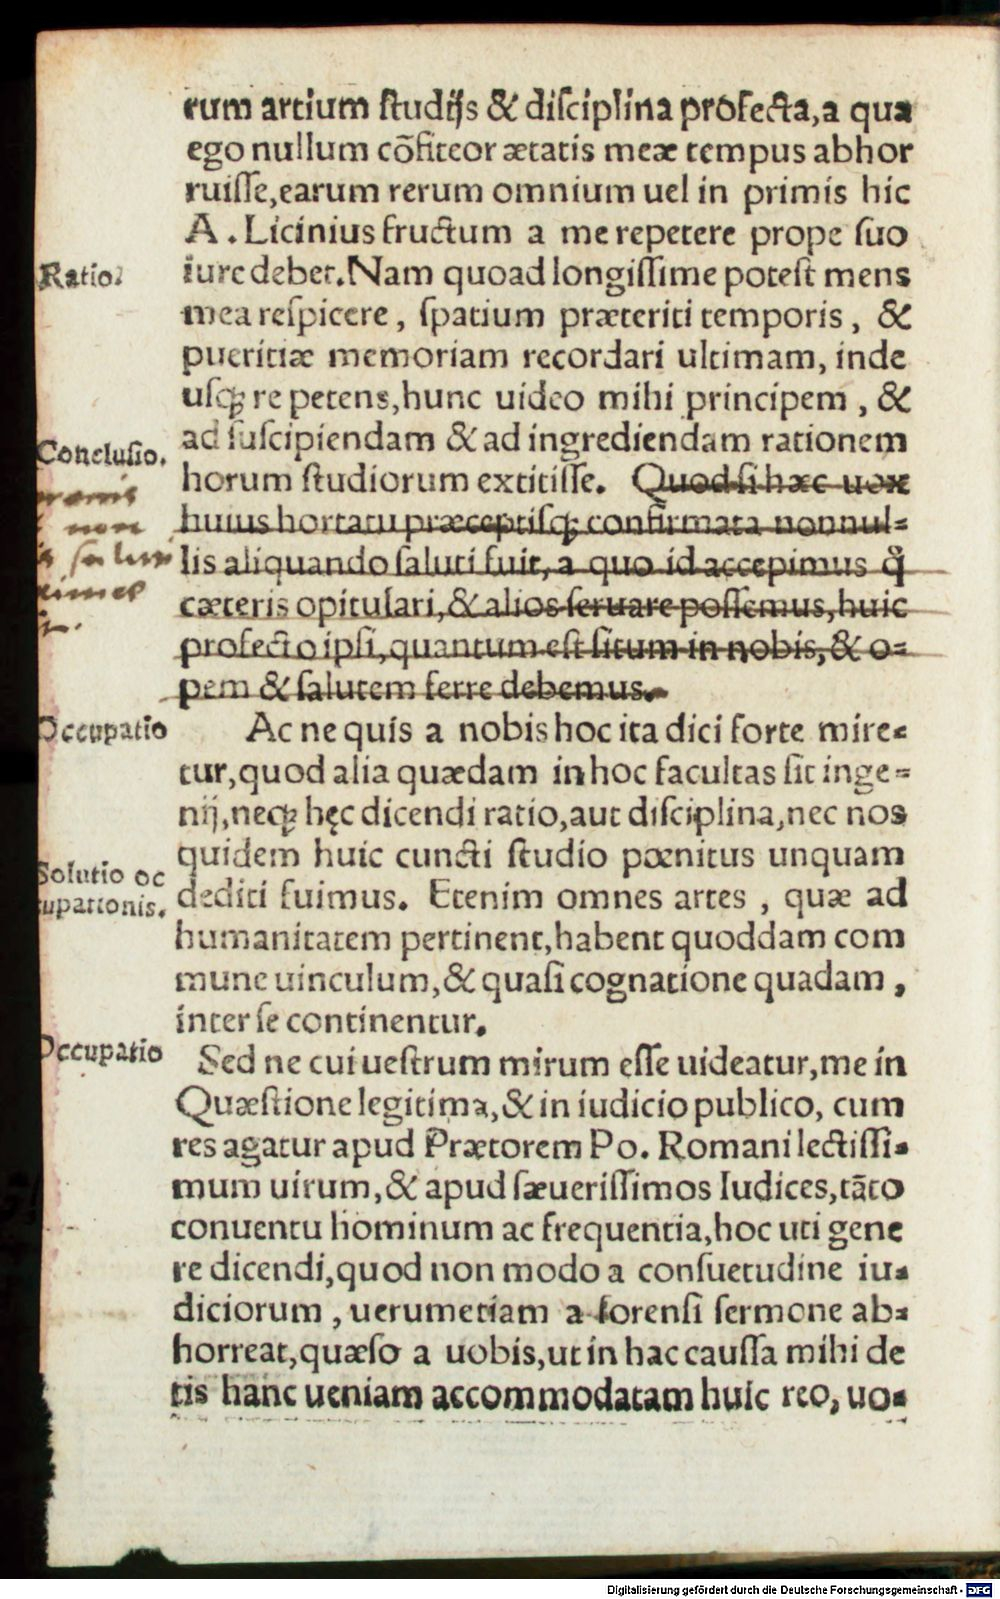 rum artium ſtudijs & diſciplina profecta,a qua
ego nullum cõfiteor ætatis meæ tempus abhor
ruiſſe,earum rerum omnium uel in primis hic
A. Licinius fructum a me repetere prope ſuo
Ratio.
iure debet. Nam quoad longiſſime poteſt mens
mea reſpicere, ſpatium præteriti temporis, &
pueritiæ memoriam recordari ultimam, inde
uſqꝫ repetens,hunc uideo mihi principem, &
Concluſio.
ad ſuſcipiendam & ad ingrediendam rationem
horum ſtudiorum extitiſſe. Quod ſi hæc uox
huius hortatu præceptiſqꝫ confirmata nonnul-
non
lis aliquando ſaluti fuit, a quo id accepimus q̃
cæteris opitulari,& alios ſeruare poſſemus,huic
profecto ipſi,quantum eſt ſitum in nobis,& o-
pem & ſalutem ferre debemus.
Occupatio
Ac ne quis a nobis hoc ita dici forte mire-
tur,quod alia quædam in hoc facultas ſit inge-
nij,neqꝫ hęc dicendi ratio,aut diſciplina,nec nos
quidem huic cuncti ſtudio pœnitus unquam
Solutio oc
cupationis.
dediti fuimus. Etenim omnes artes, quæ ad
humanitatem pertinent,habent quoddam com
mune uinculum,& quaſi cognatione quadam,
inter ſe continentur.
Occupatio
Sed ne cui ueſtrum mirum eſſe uideatur,me in
Quæſtione legitima,& in iudicio publico, cum
res agatur apud Prætorem Po. Romani lectiſſi-
mum uirum,& apud ſæueriſſimos Iudices,tãto
conuentu hominum ac frequentia,hoc uti gene
re dicendi,quod non modo a conſuetudine iu-
diciorum, uerumetiam a forenſi ſermone ab-
horreat,quæſo a uobis,ut in hac cauſſa mihi de
tis hanc ueniam accommodatam huic reo, uo-
Digitalisierung gefördert durch die Deutsche Forschungsgemeinschaft - DFG